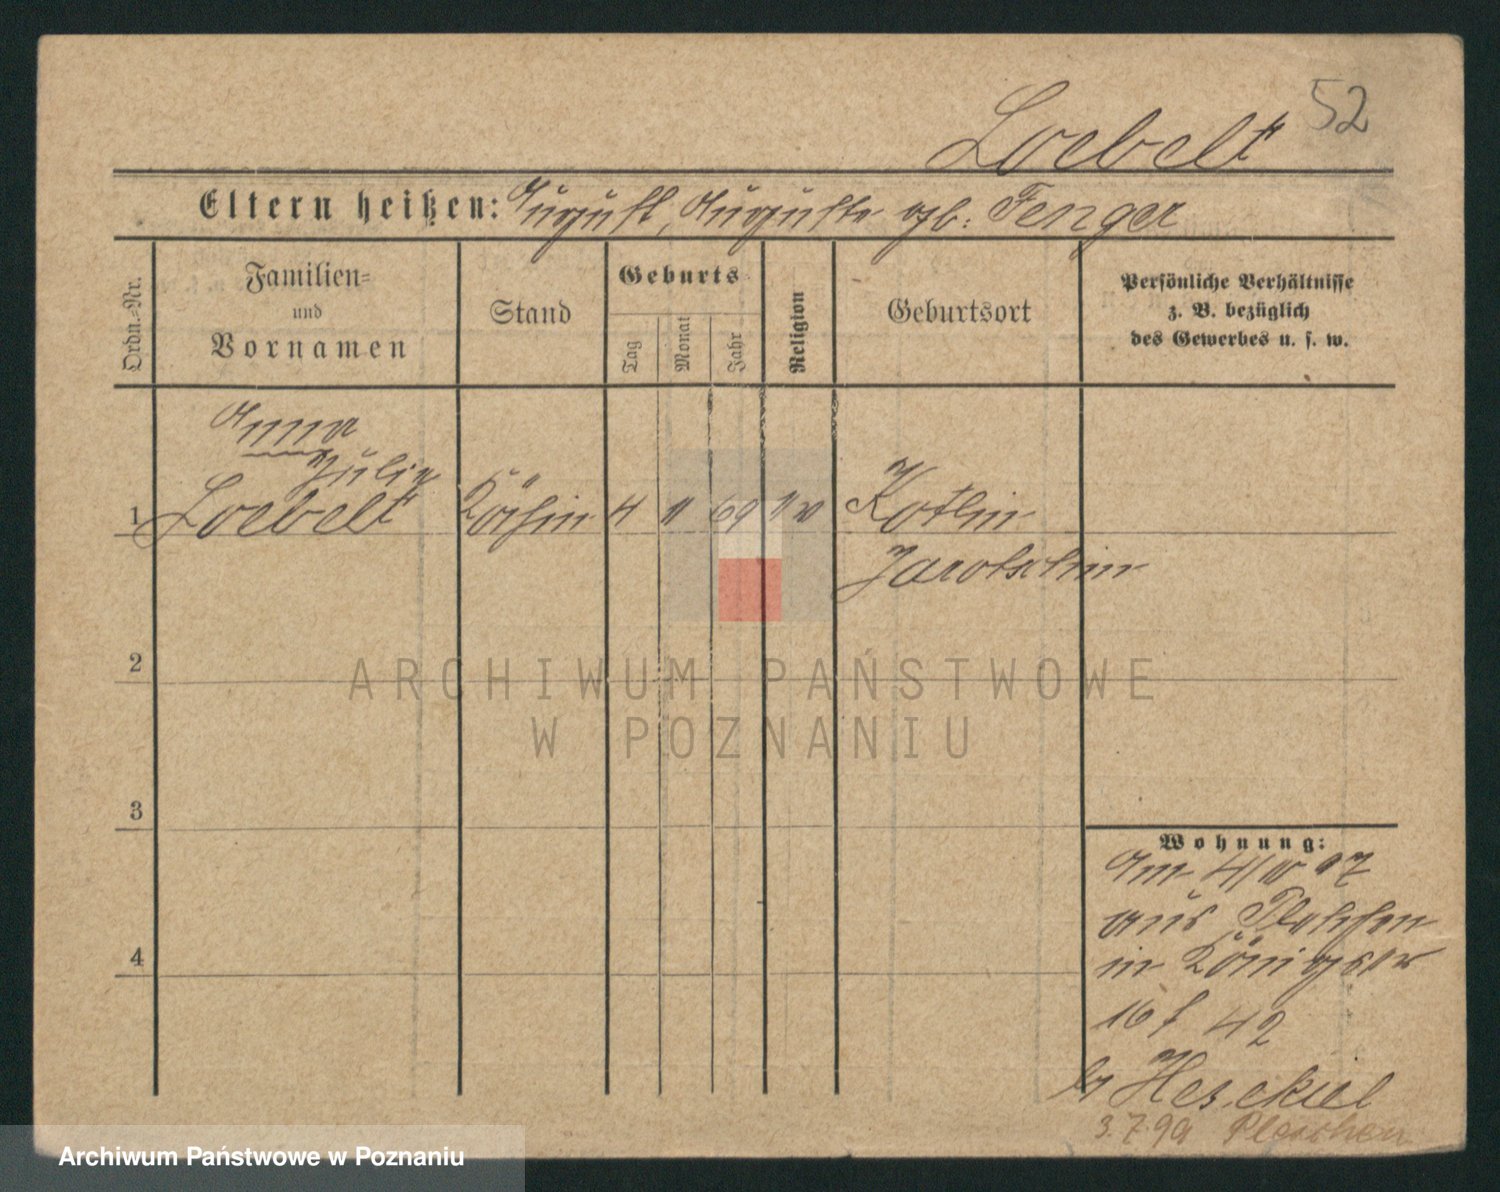 Loebelt 52
Eltern heißen: August, Auguste geb: Fenger
Ordn.=Nr.
Familien=
und
Vornamen
Stand
Geburts
Tag
Monat
Jahr
Religion
Geburtsort
Persönliche Verhältnisse
z. B. bezüglich
des Gewerbes u. s. w.
Anna
Julia
1 Loebelt Köchin 4 11 69 Kotlin
Jarotschin
2
3
4
Wohnung:
Am 4/10 97
aus Pleschen
in Königstr
16 f 42
b Hesekiel
3.7.99 Pleschen
ARCHIWUM PAŃSTWOWE
W POZNANIU
Archiwum Państwowe w Poznaniu